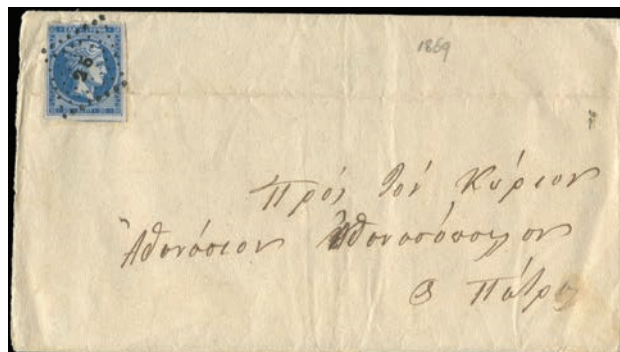 1869
25
Πρός τόν Κύριον
Ἀθανάσιον Ἀθανασόπουλον
Πάτρα